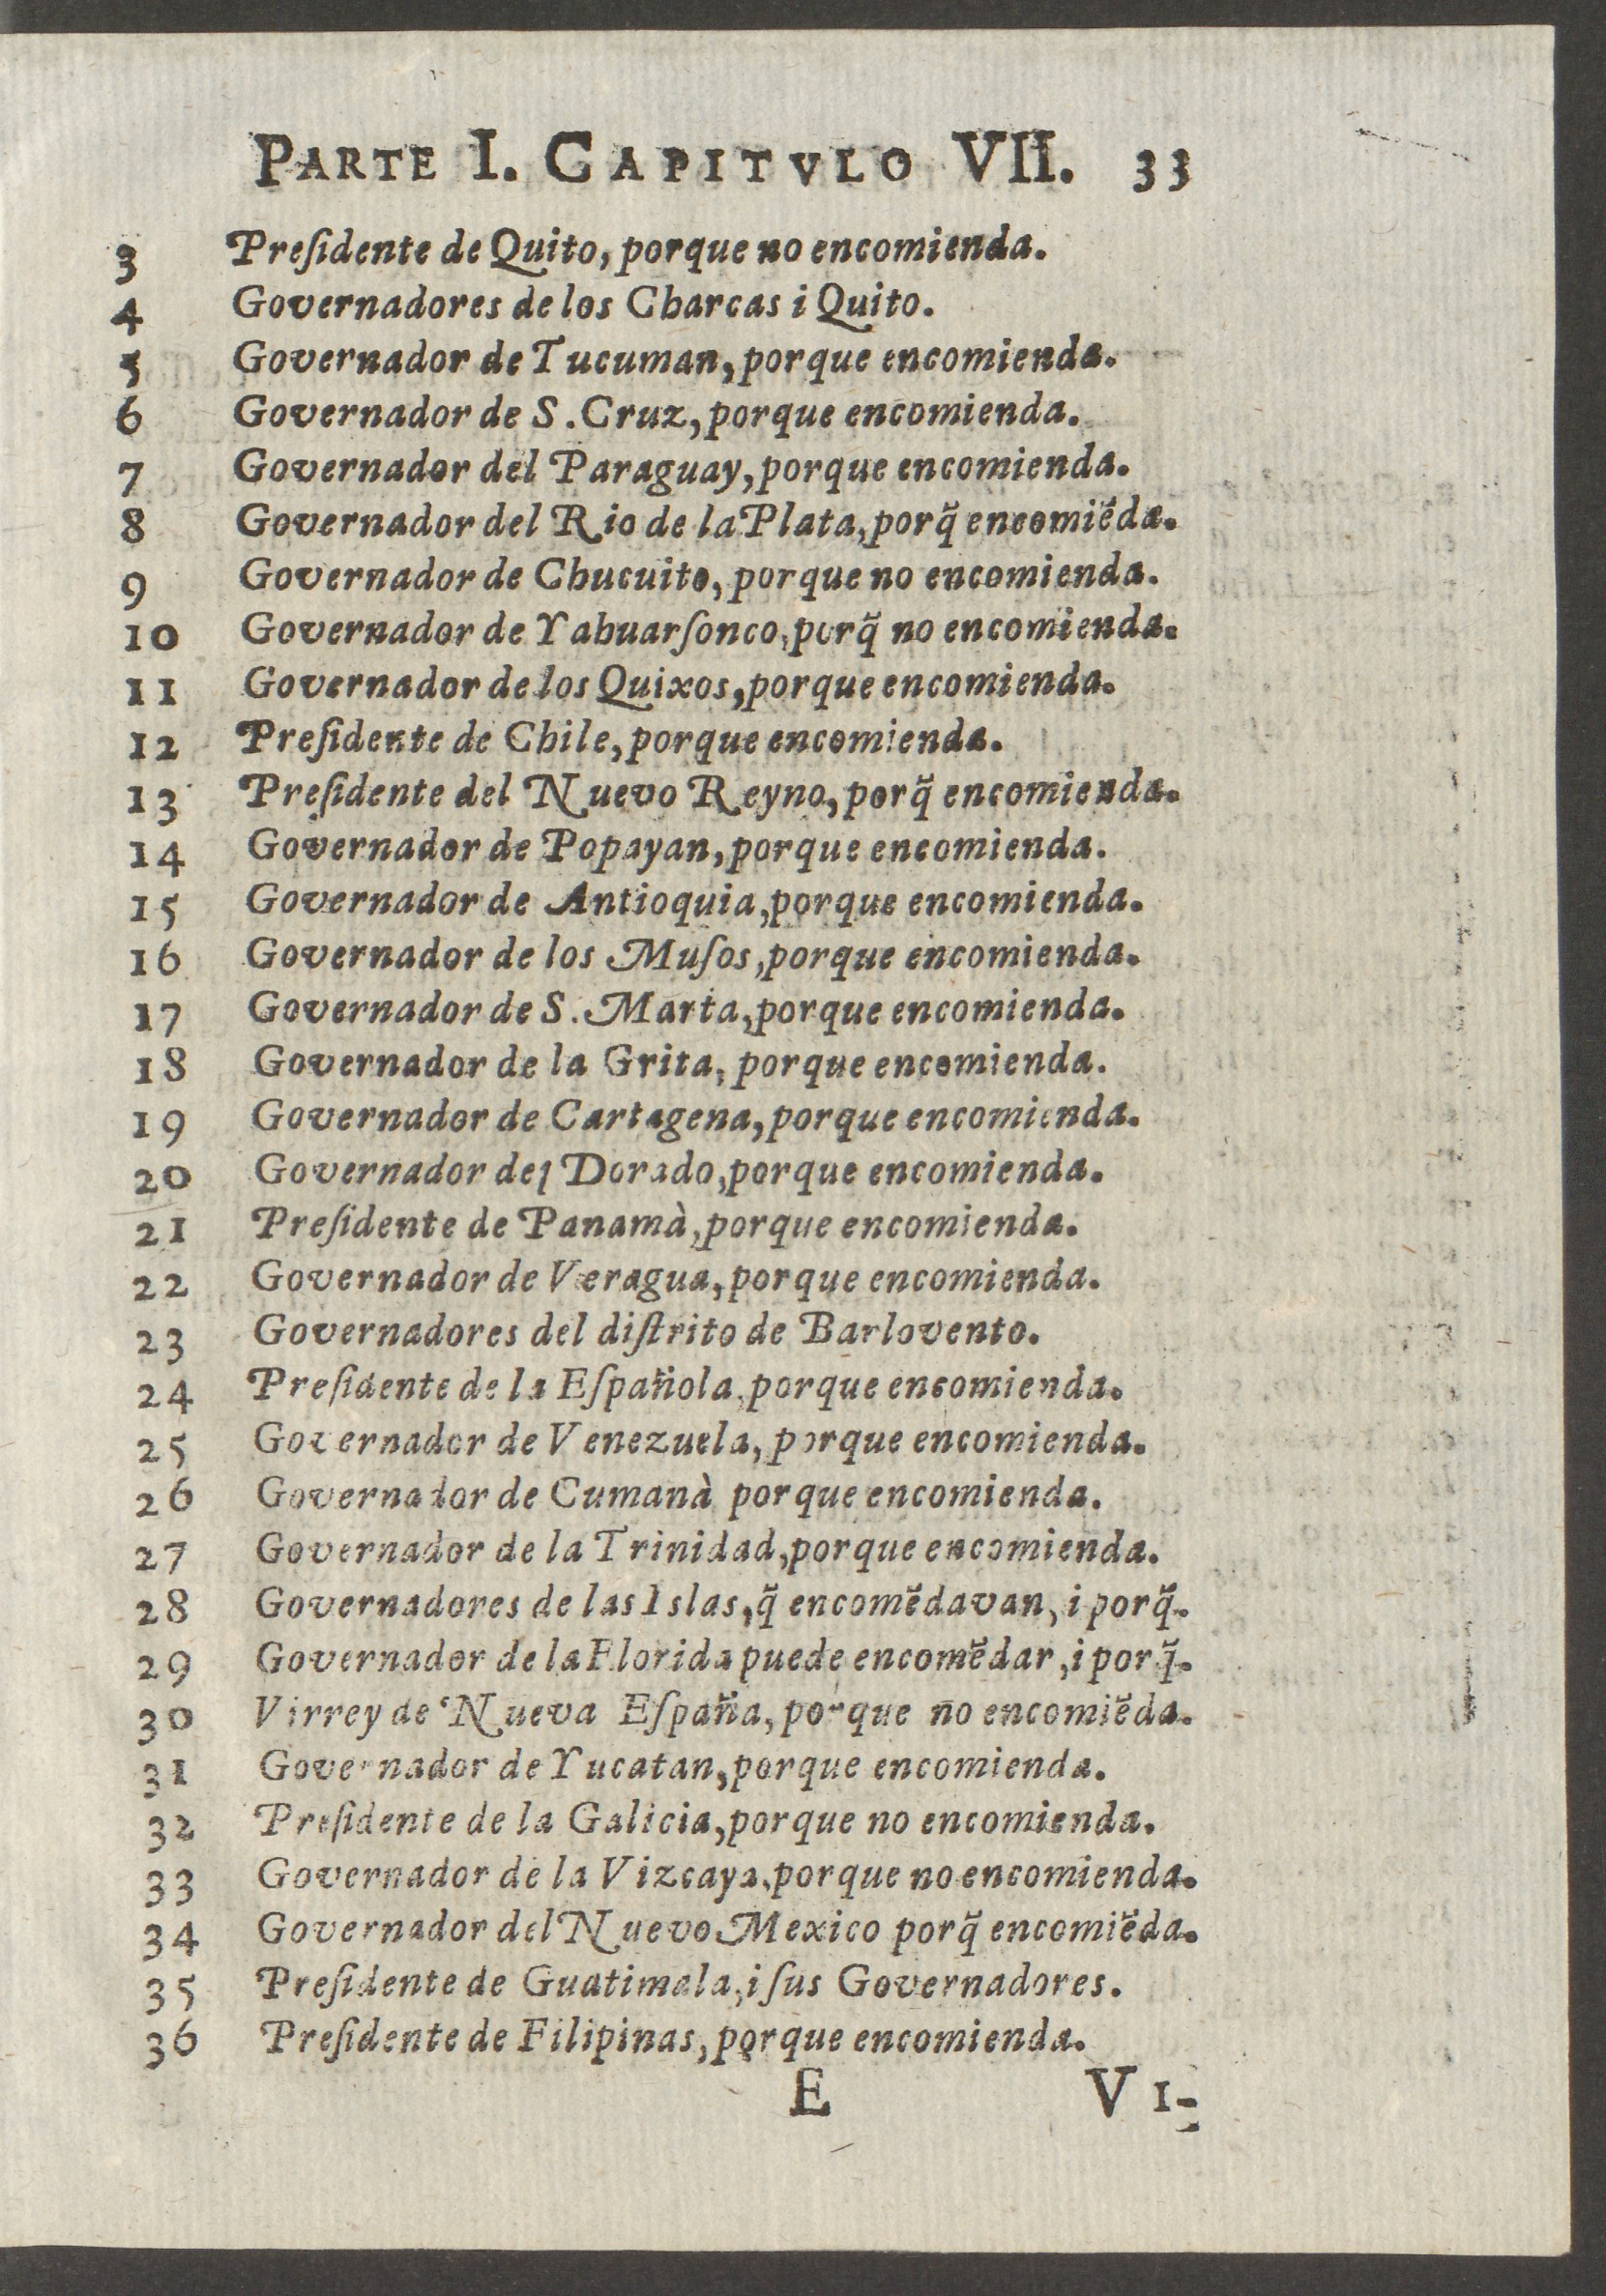 PARTE I. CAPITVLO VII. 33
3 Preſidente de Quito, porque no encomienda.
4 Governadores de los Charcas i Quito.
5 Governador de Tucuman, porque encomienda.
6 Governador de S. Cruz, porque encomienda.
7 Governador del Paraguay, porque encomienda.
8 Governador del Rio de la Plata, porq̃ encomiẽda.
9 Governador de Chucuito, porque no encomienda.
10 Governador de Yahuarſonco, porq̃ no encomienda.
11 Governador de los Quixos, porque encomienda.
12 Preſidente de Chile, porque encomienda.
13 Preſidente del Nuevo Reyno, porq̃ encomienda.
14 Governador de Popayan, porque encomienda.
15 Governador de Antioquia, porque encomienda.
16 Governador de los Muſos, porque encomienda.
17 Governador de S. Marta, porque encomienda.
18 Governador de la Grita, porque encomienda.
19 Governador de Cartagena, porque encomienda.
20 Governador del Dorado, porque encomienda.
21 Preſidente de Panamà, porque encomienda.
22 Governador de Veragua, porque encomienda.
23 Governadores del diſtrito de Barlovento.
24 Preſidente de la Eſpañola, porque encomienda.
25 Governador de Venezuela, porque encomienda.
26 Governador de Cumanà porque encomienda.
27 Governador de la Trinidad, porque encomienda.
28 Governadores de las Islas, q̃ encomẽdavan, i porq̃.
29 Governador de la Florida puede encomẽdar, i porq̃.
30 Virrey de Nueva Eſpaña, porque no encomiẽda.
31 Governador de Yucatan, porque encomienda.
32 Preſidente de la Galicia, porque no encomienda.
33 Governador de la Vizcaya, porque no encomienda.
34 Governador del Nuevo Mexico porq̃ encomiẽda.
35 Preſidente de Guatimala, i ſus Governadores.
36 Preſidente de Filipinas, porque encomienda.
E VI-